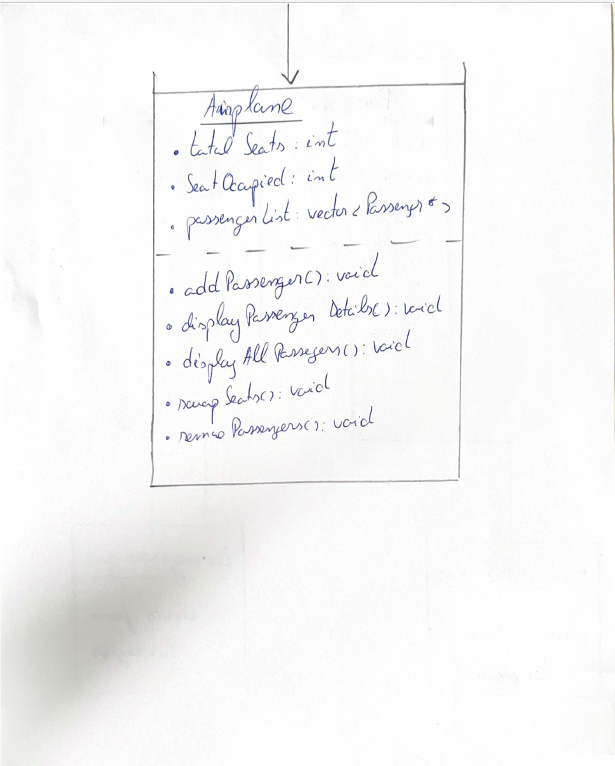 Airplane
• total Seats : int
• Seat Occupied : int
• passenger List : vector < Passenger * >
• add Passenger() : void
• display Passenger Details() : void
• display All Passegers() : void
• swap Seats() : void
• Passengers() : void